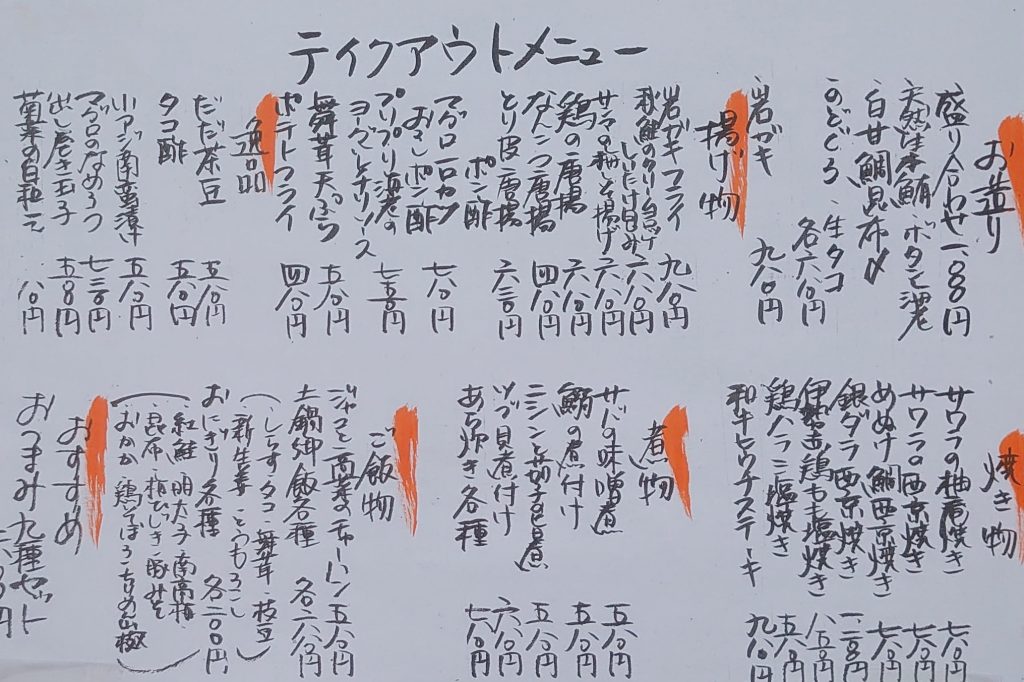 ティクアウトメニュー
お造り
盛り合わせ 一、八〇〇円
天然生本鮪・ボタン海老
白甘鯛昆布〆
のどぐろ・生タコ
各六八〇円
岩ガキ 九八〇円
揚げ物
岩ガキフライ 九八〇円
秋鮭のクリーム
しいたけ包み 六八〇円
サンマの 揚げ 六八〇円
鶏の唐揚 六八〇円
なんこつ唐揚 四八〇円
とり皮唐揚 六三〇円
ポン酢
マグロ一口カツ 七八〇円
おろしポン酢
プリプリ海老の
ヨーグルトチリソース 七五〇円
舞茸天ぷら 五八〇円
ポテトフライ 四八〇円
逸品
だだ茶豆 五八〇円
タコ酢 五八〇円
小アジ南蛮漬 五八〇円
マグロのなめろう 七三〇円
出し巻き玉子 五八〇円
菊菜の白和え
八〇円
焼き物
サワラの柚庵焼き 七八〇円
サワラの西京焼き 七八〇円
めぬけ鯛西京焼き 七八〇円
銀ダラ西京焼き
伊勢赤鶏もも塩焼き 八五〇円
鶏ハラミ塩焼き 五八〇円
和牛ヒウチステーキ 九八〇円
煮物
サバの味噌煮 五八〇円
鮪の煮付け 五八〇円
ニシンと茄子の 煮 五八〇円
ツブ貝煮付け 六八〇円
あら炊き各種 七八〇円
ご飯物
ジャコと高菜のチャーハン 五八〇円
土鍋御飯各種 各二八〇円
（しらす・タコ・舞茸・枝豆
・新生姜・とうもろこし）
おにぎり各種 各二〇〇円
（・紅鮭・明太子・南高梅
・昆布・梅ひじき・豚みそ
・おかか・鶏そぼろ・ちりめん山椒）
おすすめ
おつまみ九種セット